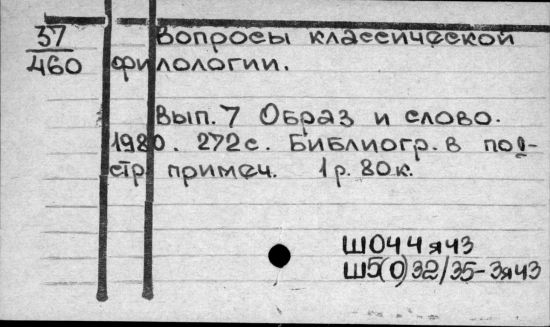 37 Вопросы классической
460 филологии.
Вып. 7 Образ и слово.
1980. 272с. Библиогр. в под-
стр. примеч. 1р. 80к.
Ш044я43
Ш5(0)32/35-3я43